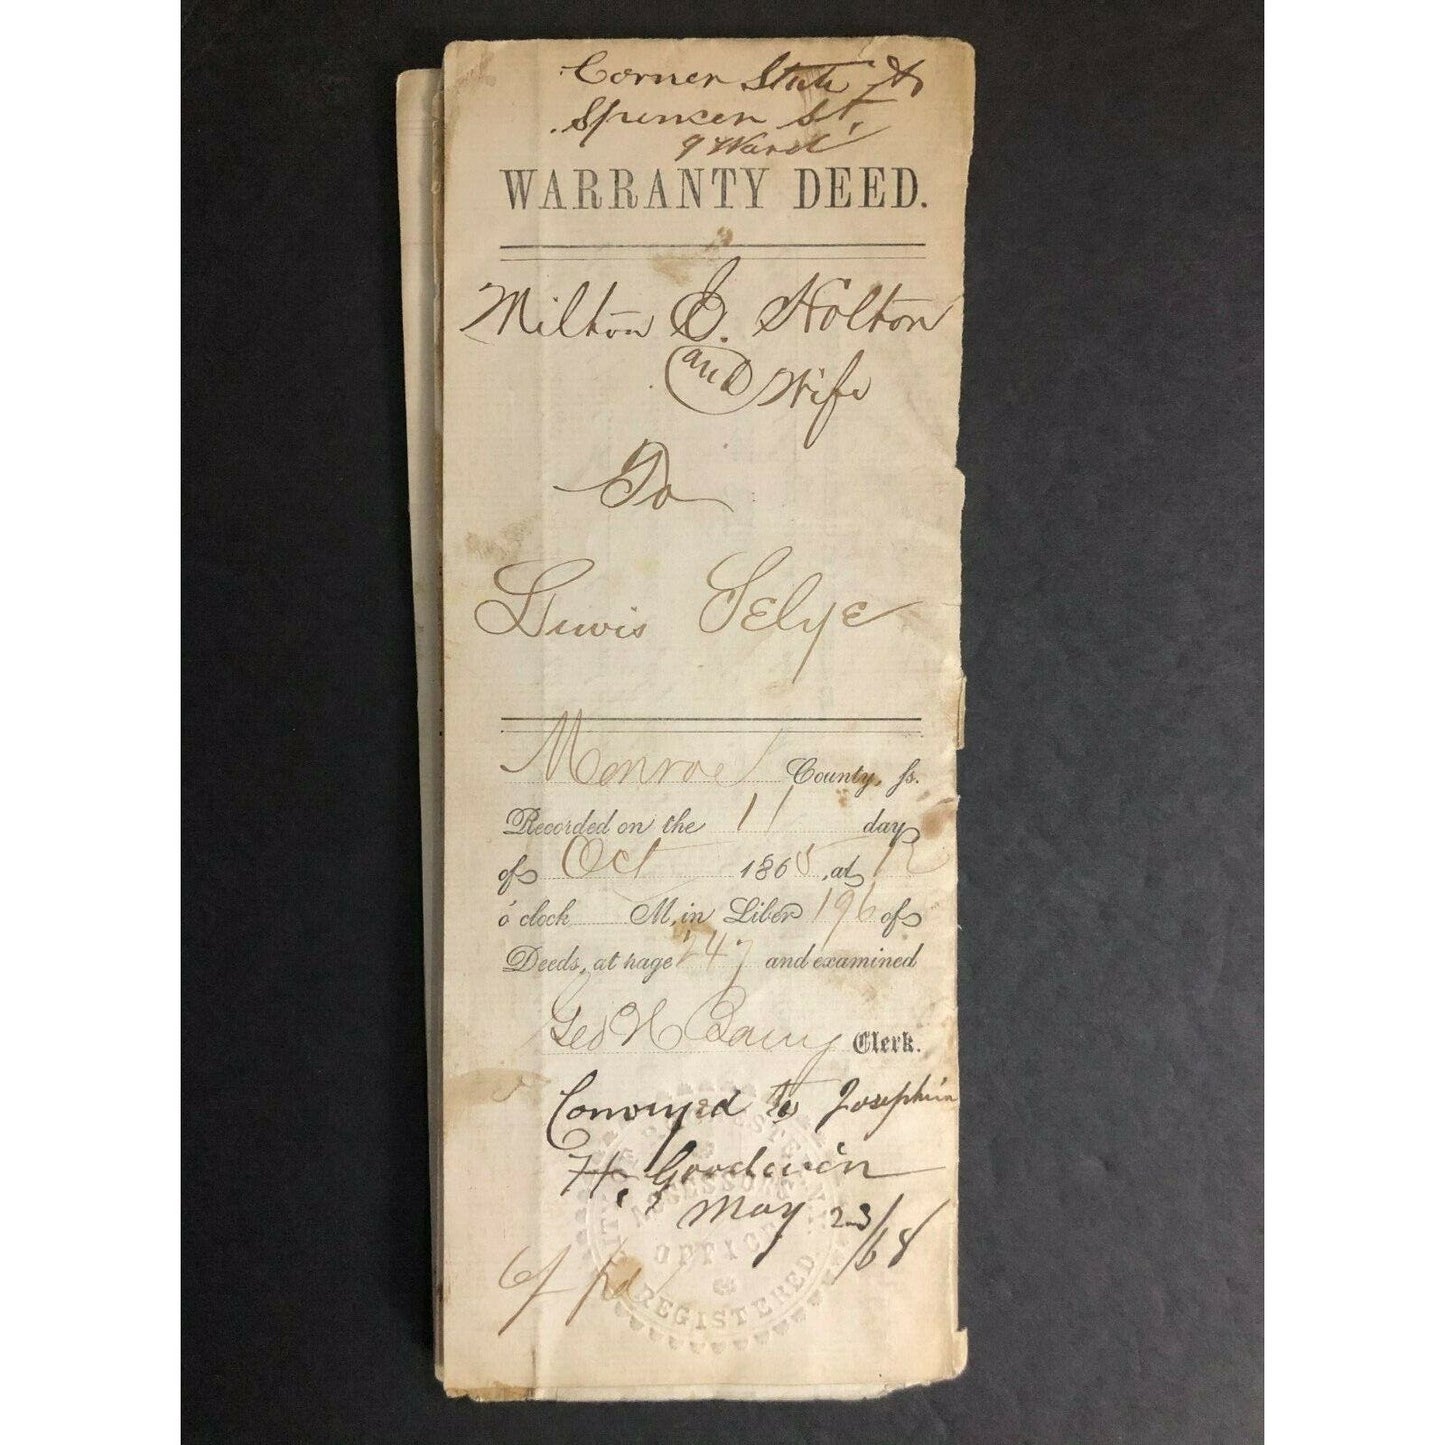 Corner State &
Spencer St.
9 Ward
WARRANTY DEED.
Milton E. Holton
and Wife
To
Lewis Selye
Monroe County, ss.
Recorded on the 11 day
of Oct 1865, at 12
o'clock M, in Liber 196 of
Deeds, at page 247 and examined
Geo H Barry Clerk.
Conveyed to Josephin
H. Goodwin
May 23/68
ROCHESTER
ASSESSORS
OFFICE
REGISTERED